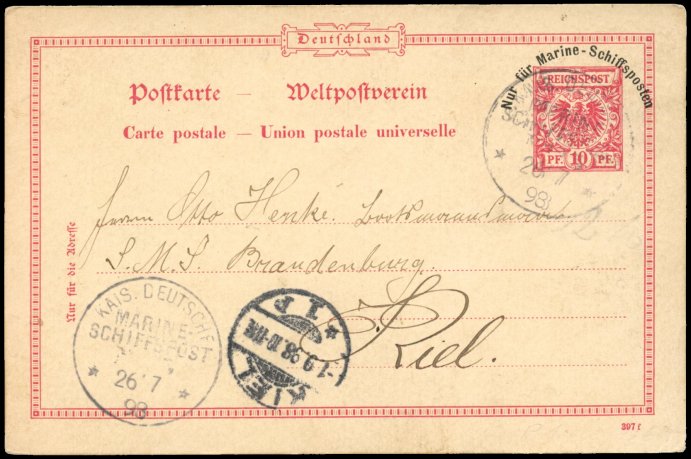 Deutschland
Nur für Marine-Schiffsposten
REICHSPOST
PF. 10 PF.
Postkarte — Weltpostverein
Carte postale — Union postale universelle
26 7
98
Nur für die Adresse
Herrn Otto Henke.
S. M. S. Brandenburg.
Kiel.
KAIS. DEUTSCHE
MARINE-
SCHIFFSPOST
* 26 7 *
98
KIEL
* 1 P
-1.9.98.
397 f